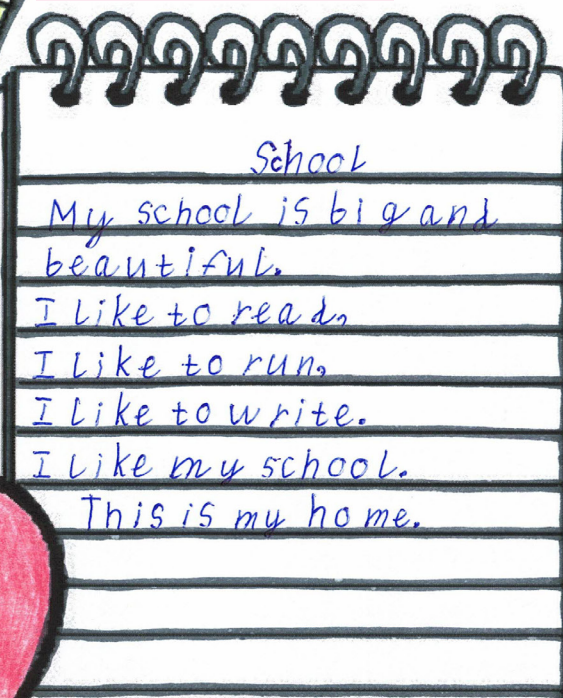 School
My school is big and
beautiful.
I like to read,
I like to run,
I like to write.
I like my school.
This is my home.